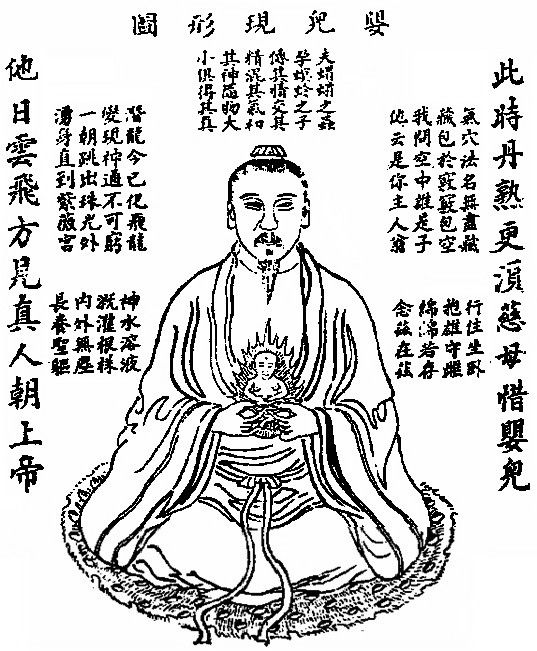 嬰兒現形圖
此時丹熟更湏慈母惜嬰兒
氣穴法名無盡藏
藏包於竅竅包空
我問空中誰是子
他云是你主人翁
行住坐臥
抱雄守雌
綿綿若存
念茲在茲
夫之蟲
孕螟蛉之子
傳其情交其
精混其氣和
其神隨物大
小俱得其真
潛龍今已化飛龍
變現神通不可窮
一朝跳出珠光外
湧身直到紫微宮
神水溶液
溉灌根株
內外無塵
長養聖軀
他日雲飛方見真人朝上帝